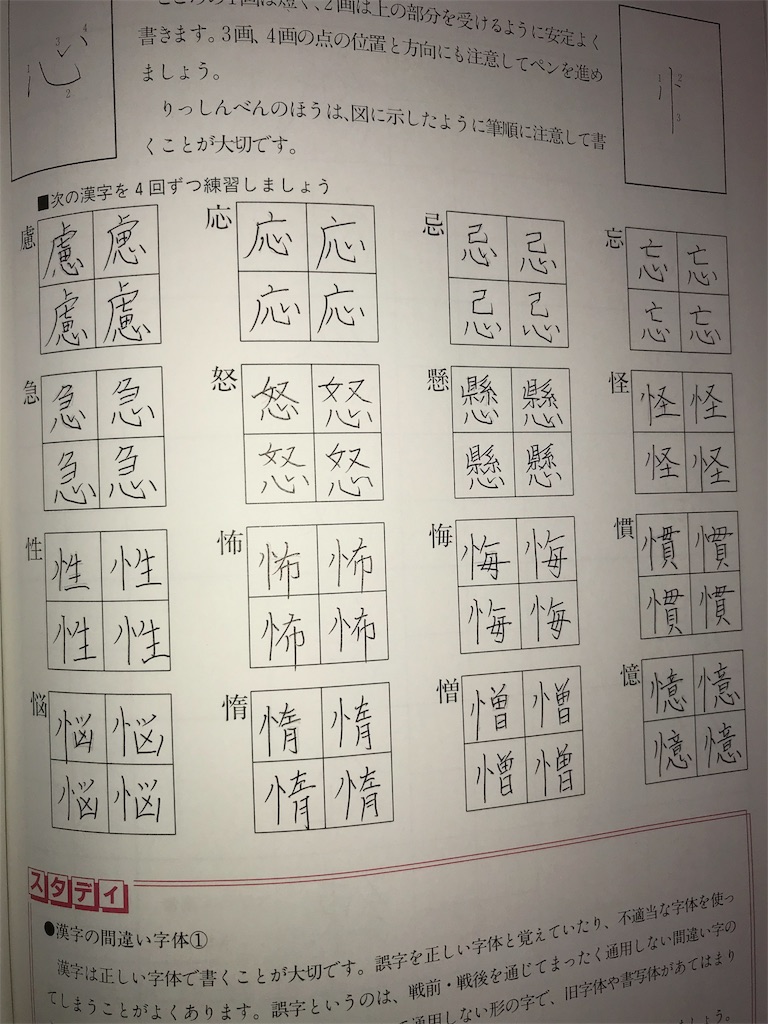 こころの1画は短く、2画は上の部分を受けるように安定よく
書きます。3画、4画の点の位置と方向にも注意してペンを進め
ましょう。
りっしんべんのほうは、図に示したように筆順に注意して書
くことが大切です。
1 2 3 4
1 2 3
■次の漢字を4回ずつ練習しましょう
慮 慮 慮 慮 慮
応 応 応 応 応
忌 忌 忌 忌 忌
忘 忘 忘 忘 忘
急 急 急 急 急
怒 怒 怒 怒 怒
懸 懸 懸 懸 懸
怪 怪 怪 怪 怪
性 性 性 性 性
怖 怖 怖 怖 怖
悔 悔 悔 悔 悔
慣 慣 慣 慣 慣
悩 悩 悩 悩 悩
惰 惰 惰 惰 惰
憎 憎 憎 憎 憎
憶 憶 憶 憶 憶
スタディ
●漢字の間違い字体①
漢字は正しい字体で書くことが大切です。誤字を正しい字体と覚えていたり、不適当な字体を使っ
てしまうことがよくあります。誤字というのは、戦前・戦後を通じてまったく通用しない間違い字の
通用しない形の字で、旧字体や書写体があてはまり
しょう。